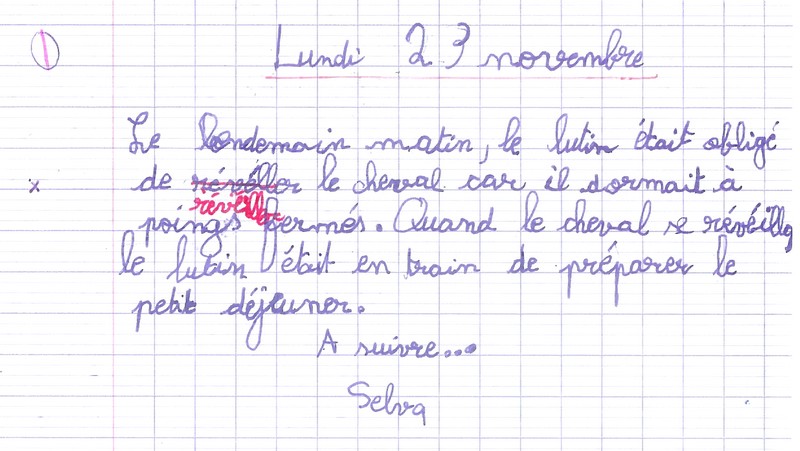 1
Lundi 23 novembre
Le lendemain matin, le lutin était obligé
x de révéller le cheval car il dormait à
réveiller
poings fermés. Quand le cheval se révéilla,
le lutin était en train de préparer le
petit déjeuner.
A suivre...
Selva